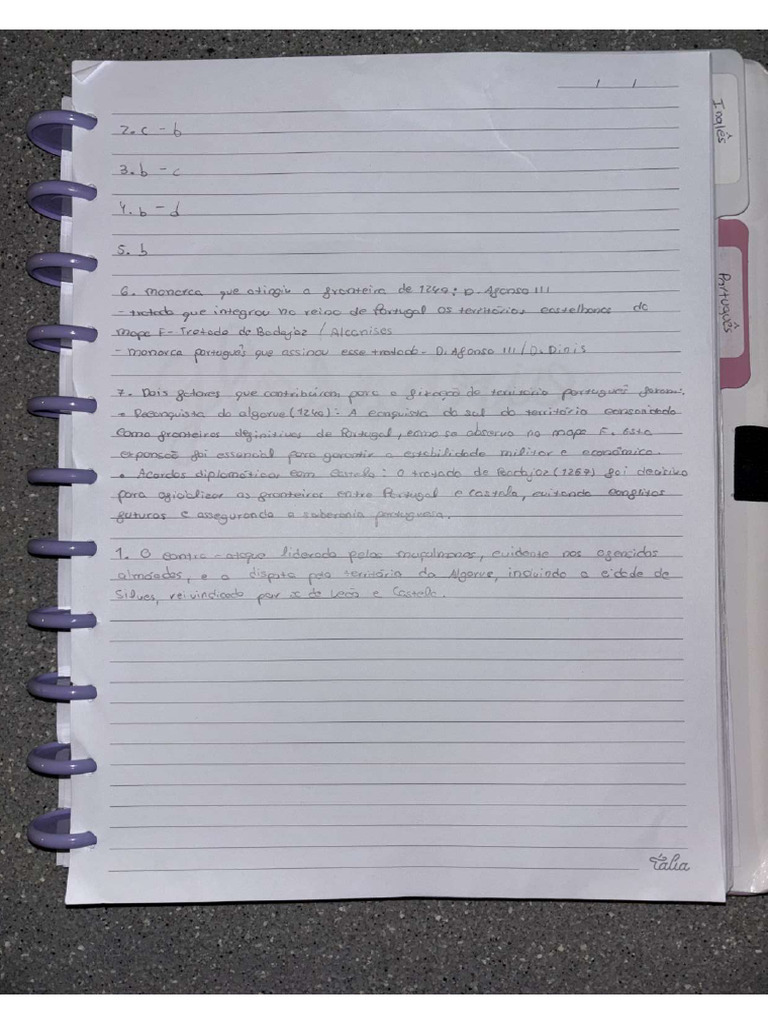 / /
2. c - b
3. b - c
4. b - d
5. b
6. monarca que atingiu a fronteira de 1249: D. Afonso III
- tratado que integrou no reino de Portugal os territórios castelhanos do
mapa F - Tratado de Badajoz / Alcanises
- monarca português que assinou esse tratado - D. Afonso III / D. Dinis
7. Dois fatores que contribuíram para a fixação do território português foram:
• Reconquista do algarve (1249): A conquista do sul do território consolidado
como fronteiras definitivas de Portugal, como se observa no mapa F. Esta
expansão foi essencial para garantir a estabilidade militar e económica.
• Acordos diplomáticos com Castela: O tratado de Badajoz (1267) foi decisivo
para oficializar as fronteiras entre Portugal e Castela, evitando conflitos
futuros e assegurando a soberania portuguesa.
1. O contra-ataque liderado pelos muçulmanos, evidente nos
almóadas, e a disputa pelo território do Algarve, incluindo a cidade de
Silves, reivindicado por x de Leão e Castela.
Tália
Inglês
Português